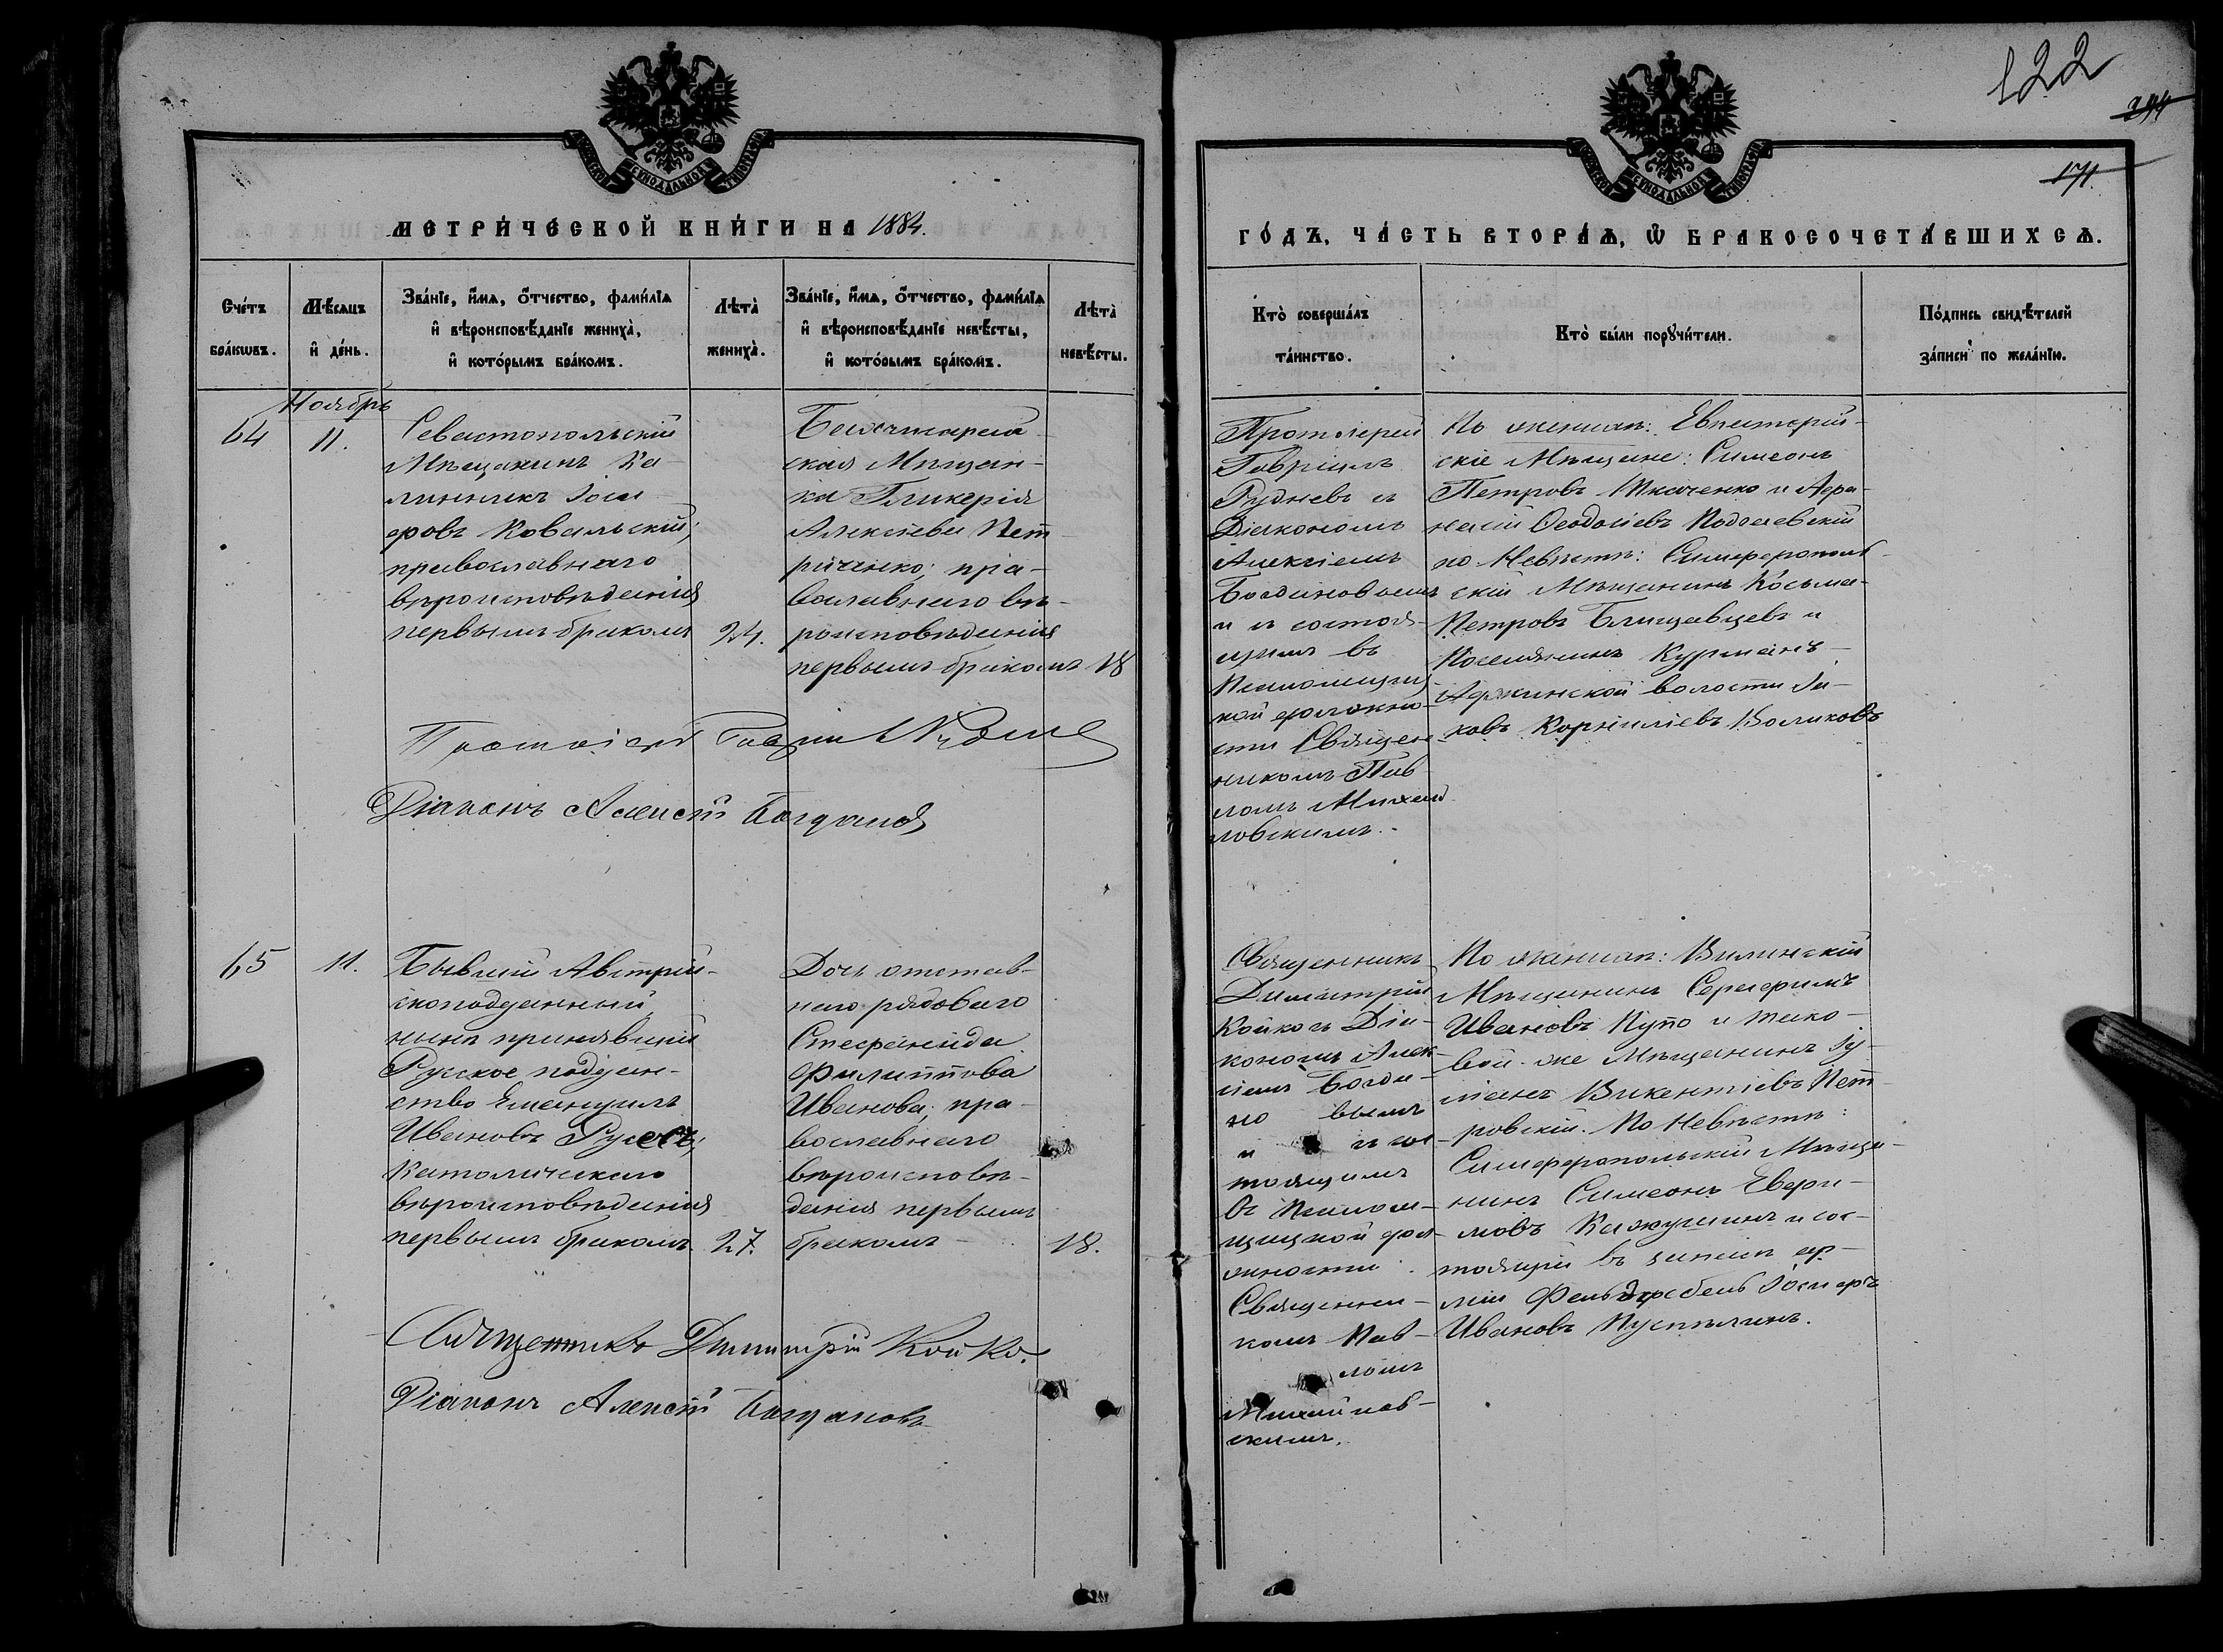 122
244
171.
МЕТРИ́ЧЕСКОЙ КНИ́ГИ НА 1884.
ГО́ДЪ, ЧА́СТЬ ВТОРА́Ѧ, Ѽ БРАКОСОЧЕТА́ВШИХСѦ.
Сче́тъ
бра́кωвъ.
Мѣ́сѧцъ
и҆ де́нь.
Зва́нїе, и҆́мѧ, ѻ҆́тчество, фами́лїѧ
и҆ вѣроисповѣ́данїе жениха̀,
и҆ кото́рымъ бра́комъ.
Лѣта̀
жениха̀.
Зва́нїе, и҆́мѧ, ѻ҆́тчество, фами́лїѧ
и҆ вѣроисповѣ́данїе невѣ́сты,
и҆ кото́рымъ бра́комъ.
Лѣта̀
невѣ́сты.
Кто̀ соверша́лъ
та́инство.
Кто̀ бы́ли порꙋчи́тели.
По́дпись свидѣ́телей
за́писи по жела́нїю.
Ноябрь
64
11.
Севастопольскій
Мѣщанинъ Ка-
линникъ Іоси
фовъ Ковальскій;
православнаго
вѣроисповѣданія
первымъ бракомъ
24.
Бахчисарай
ская Мѣщан-
ка Гликерія
Алексѣева Пет
риченко; пра-
вославнаго вѣ-
роисповѣданія
первымъ бракомъ
18
Протоіерей
Гавріилъ
Рудневъ съ
Діакономъ
Алексіемъ
Богдановымъ
и съ состоя-
щимъ въ
Псаломщиц
кой должно-
сти Священ
никомъ Пав
ломъ Михай
ловскимъ.
По женихѣ: Евпаторій-
скіе Мѣщане: Симеонъ
Петровъ Ткаченко и Афа-
насій Феодосіевъ Подолевскій
по Невѣстѣ: Симферополь-
скій Мѣщанинъ Косьма
Петровъ Блищавцевъ и
Поселянинъ Курманъ-
Аджинской волости Іа-
ковъ Корниліевъ Воликовъ
Протоіерей Гавріилъ Рудневъ
Діаконъ Алексій Богдановъ
65
11.
Бывшій Австрій-
скоподданный,
нынѣ принявшій
Русское поддан-
ство Емануилъ
Ивановъ Русесъ,
Католическаго
вѣроисповѣданія
первымъ бракомъ.
27.
Дочь отстав-
наго рядоваго
Стефанида
Филиппова
Иванова; пра-
вославнаго
вѣроисповѣ-
данія первымъ
бракомъ
18.
Священникъ
Димитрій
Койко съ Діа-
кономъ Алек-
сіемъ Богда-
но вымъ
и съ со-
тоящимъ
въ Псалом-
щицкой дол-
жности
Священни-
комъ Пав-
ломъ
Михайлов-
скимъ.
По женихѣ: Виленскій
Мѣщанинъ Серафимъ
Ивановъ Путо и тако-
вой-же Мѣщанинъ Ју-
ліанъ Викентіевъ Пет-
ровскій. По Невѣстѣ:
Симферопольскій Мѣща-
нинъ Симеонъ Евфи-
мовъ Кажушинъ и сос-
тоящій въ запасѣ ар-
міи Фельдфебель Іосифъ
Ивановъ Пустылинъ.
Священникъ Димитрій Койко.
Діаконъ Алексій Богдановъ